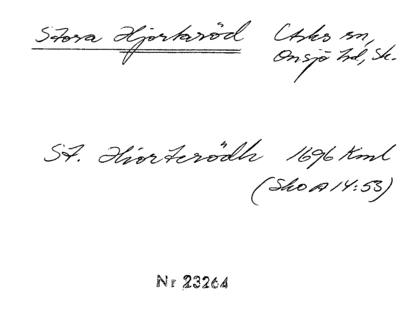 Stora Hjortaröd Asks sn,
Onsjö hd, Sk.
St. Hiorterödh 1696 Kml
(Sko A 14:53)
Nr 23264